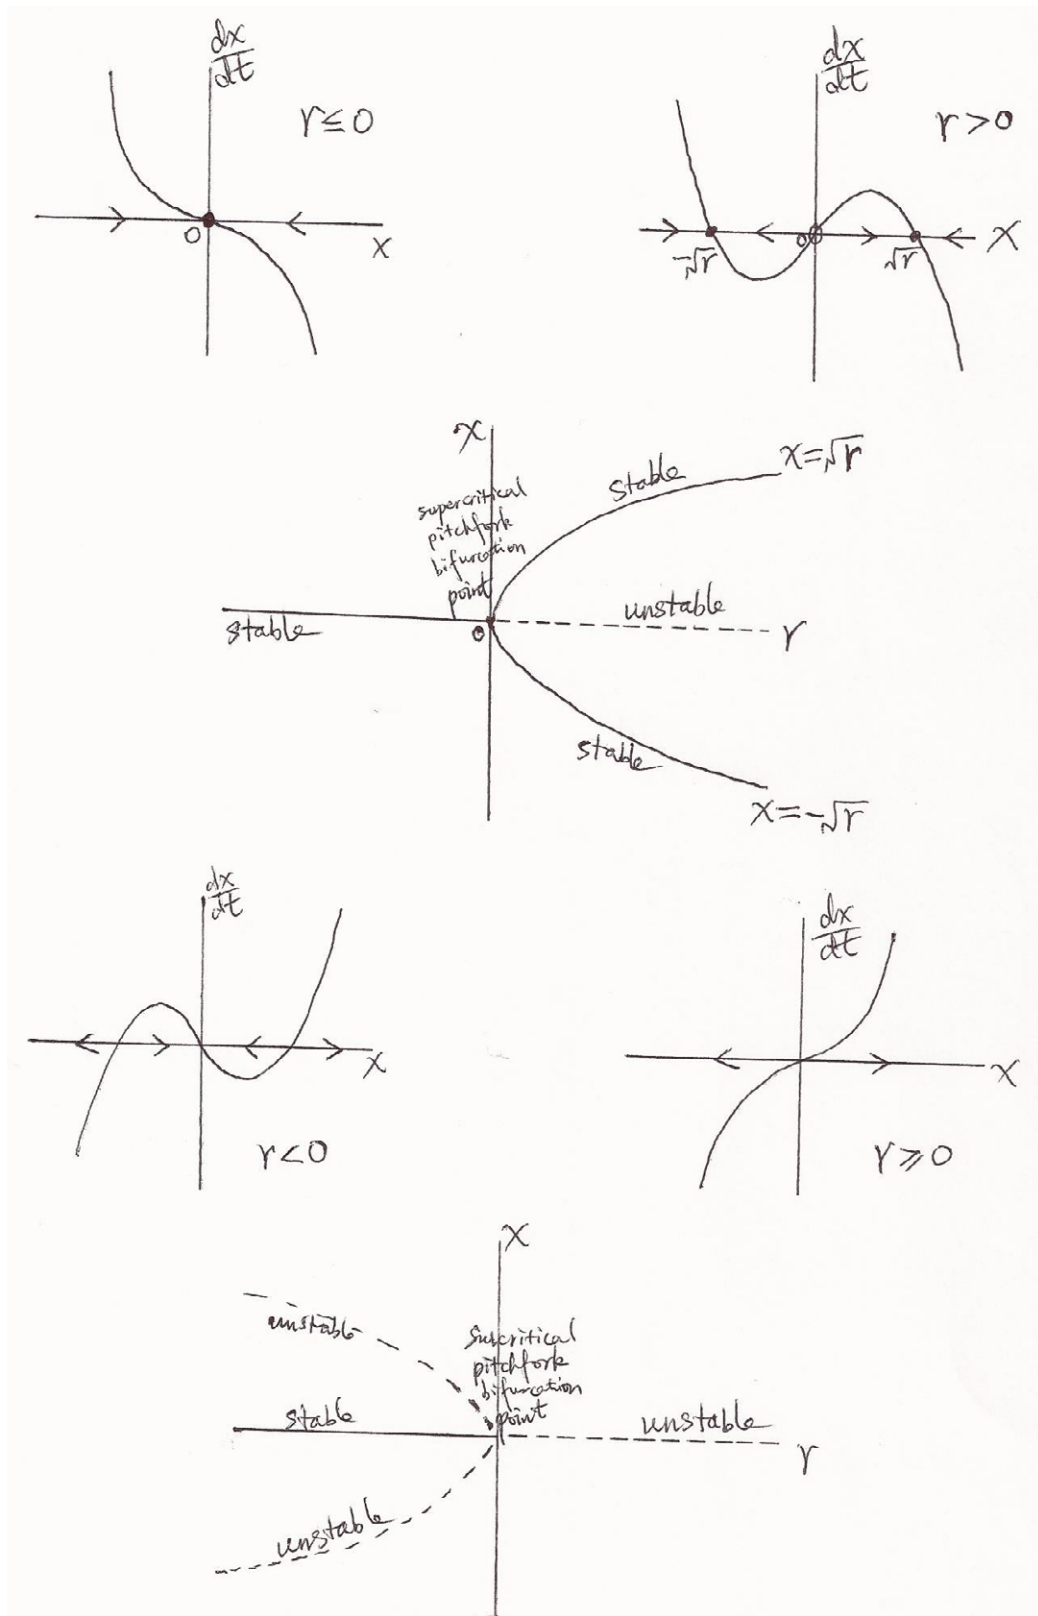 dx
dt
r ≦ 0
0
x
dx
dt
r > 0
-√r
0
√r
x
x
x=√r
stable
supercritical
pitchfork
bifurcation
point
unstable
stable
0
r
stable
x=-√r
dx
dt
x
r<0
dx
dt
x
r⩾0
x
unstable
Subcritical
pitchfork
bifurcation
point
stable
unstable
r
unstable